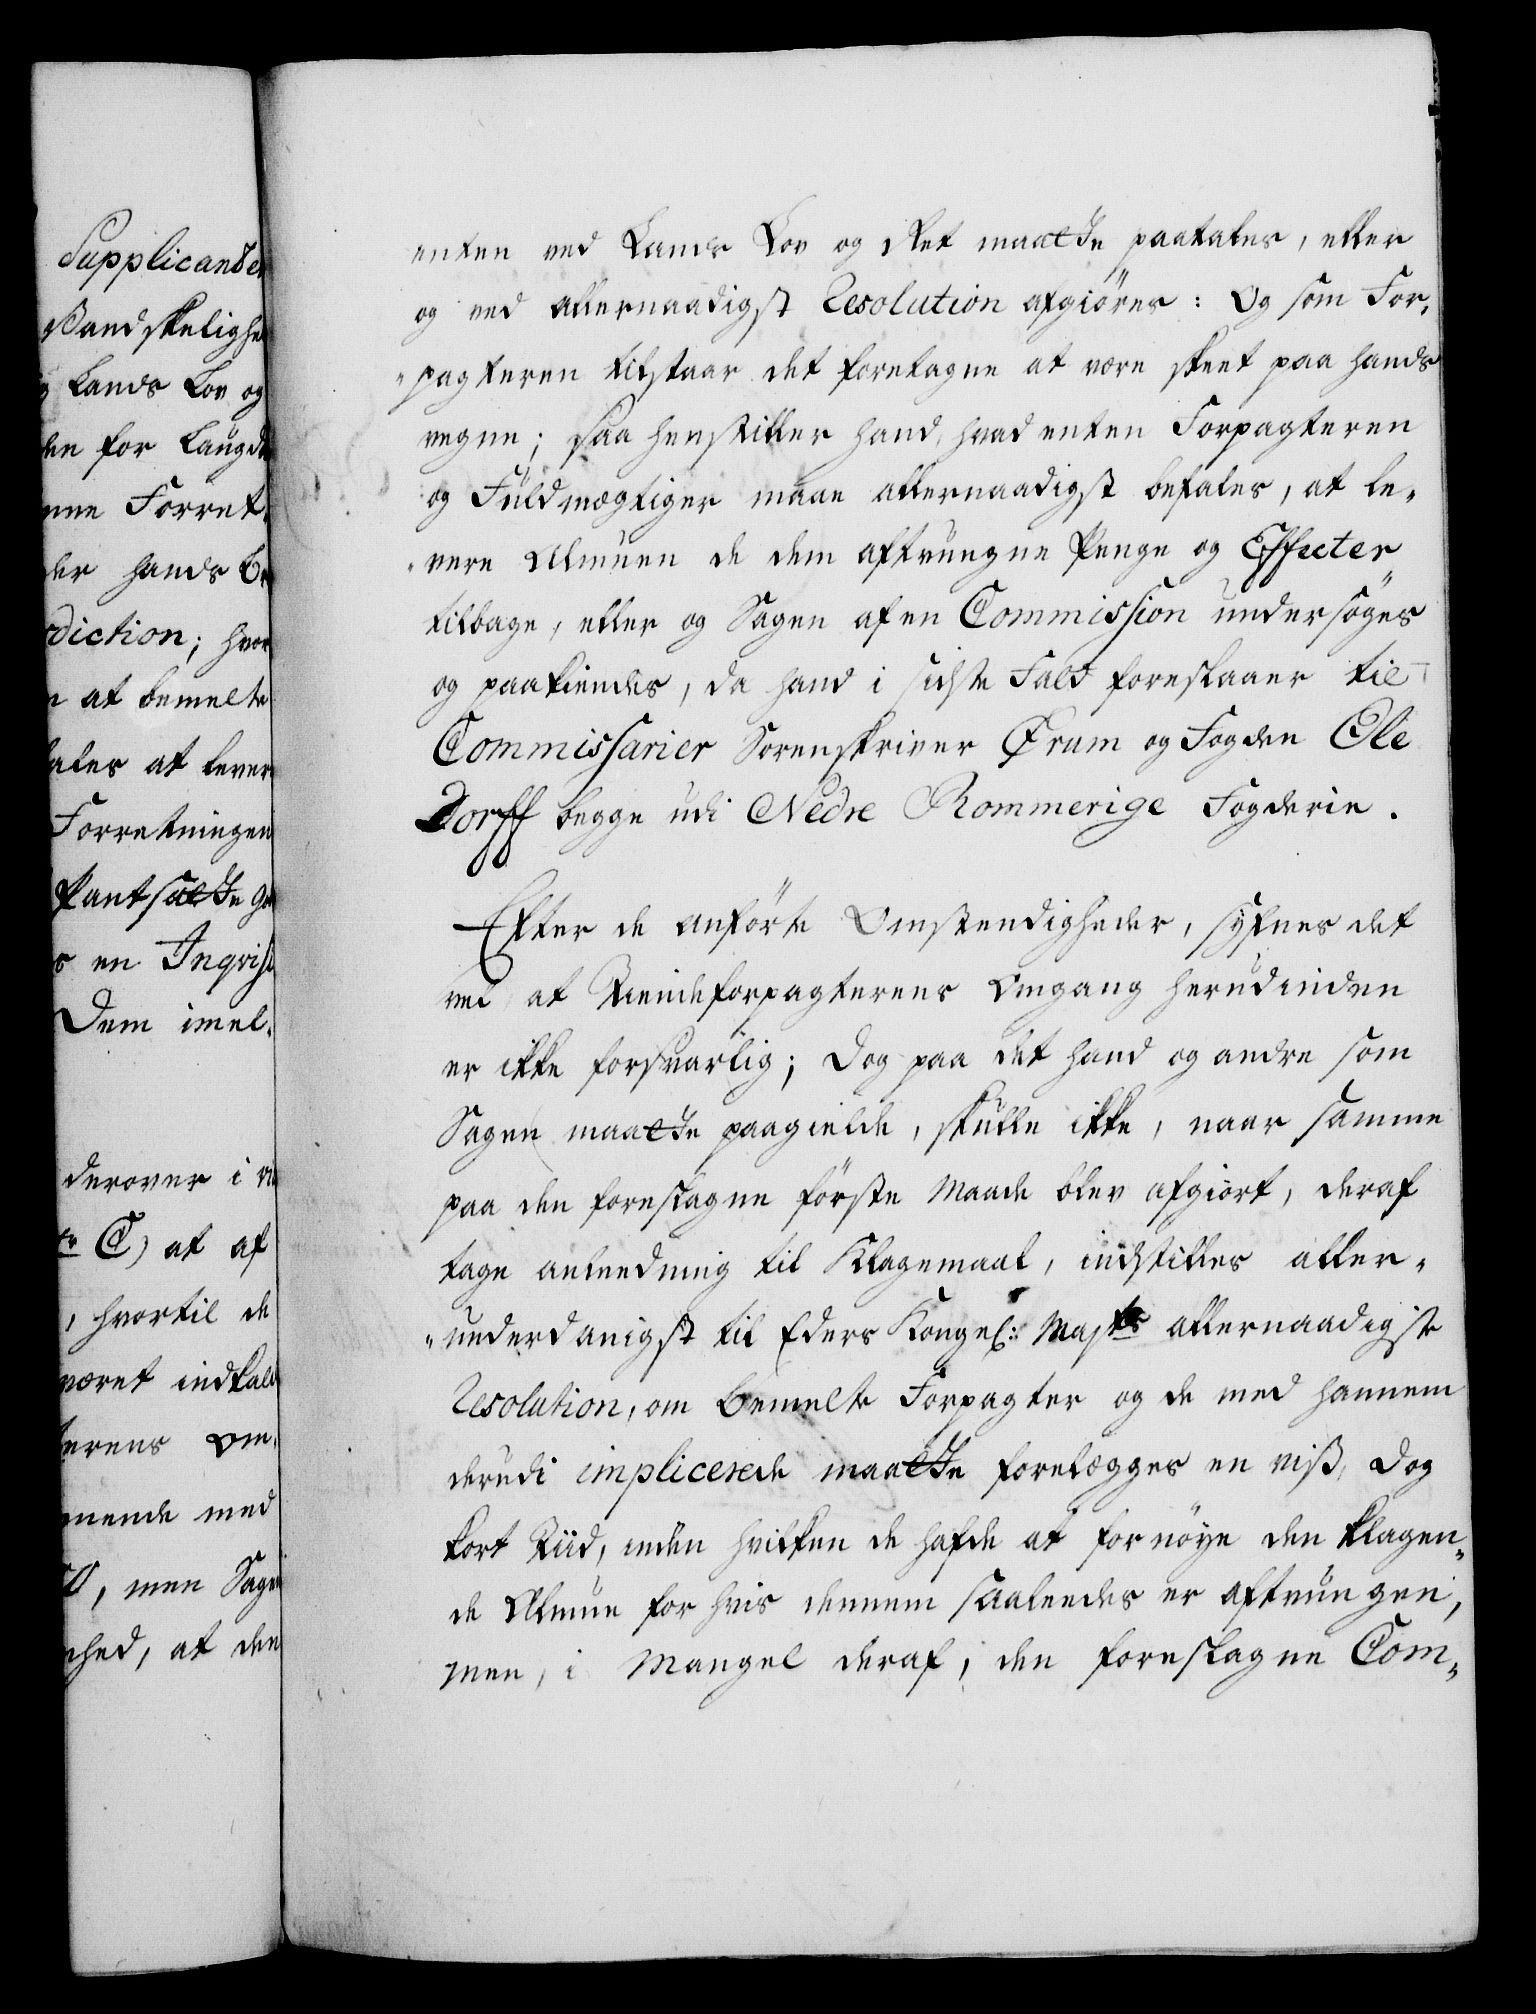 Supplicander
Vandskeligheder
og Lands Lov og
den for Laugd
nne Forret„
der hands Em
diction; hvor
n at bemelte
ales at lever
Forretningen
Pantsatte
s en Inqvisi
Dem imel„
derover i
C) at af
, hvortil de
været indkald
terens Om„
mende med
, men Sagen
hed, at den
enten ved Lands Lov og Ret maatte paatales, eller
og ved allernaadigst Resolution afgiöres: Og som For„
„pagteren tilstaar det foretagne at være skeet paa hands
vegne; saa henstiller hand, hvad enten Forpagteren
og Fuldmægtiger maae allernaadigst befales, at le„
„vere Almuen de dem aftrungne Penge og Effecter
tilbage, eller og Sagen af en Commission undersöges
og paakiendes, da hand i sidste Fald foreslaaer til
Commissarier Sorenskriver Ørum og Fogden Ole
Dorff begge udi Nedre Rommerige Fogderie.
Efter de anförte Omstendigheder, syfnes det
vel at Tiendeforpagterens Omgang herudinden
er ikke forsvarlig; Dog paa det hand og andre som
Sagen maatte paagielde, skulle ikke, naar samme
paa den foreslagne förste Maade blev afgiort, deraf
tage anleedning til Klagemaal, indstilles aller„
„underdanigst til Eders Kongel: Majts allernaadigste
Resolution, om bemelte Forpagter og de med hannem
derudi implicerede maatte forelægges en viss, dog
kort Tiid, inden hvilken de hafde at fornöye den klagen„
de Almue for hvis dennem saaleedes er aftrungen,
men, i Mangel deraf, den foreslagne Com„